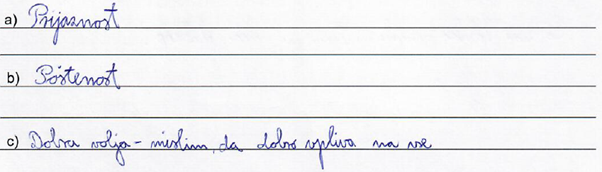 a) Prijaznost
b) Poštenost
c) Dobra volja - mislim, da dobro vpliva na vse